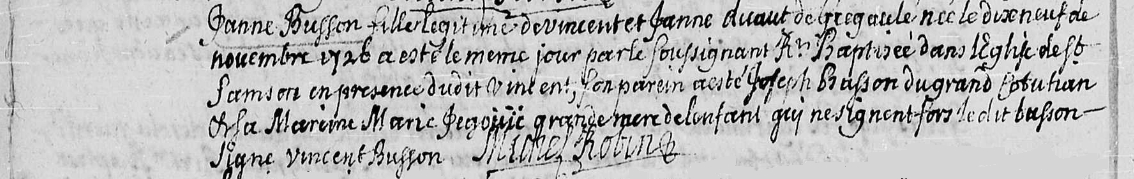 Janne Busson fille legitime de vincent et Janne duaut de gregaule nee le dix neuf de
novembre 1726 a esté le meme jour par le soussignant Rr Baptisée dans l'Eglise de st
Samson en presence dudit vincent, son parein a esté Joseph Busson du grand
& sa Mareine Marie Jegoüic grande mere de l'enfant qui ne signent fors le dit busson
Signe vincent Busson Michel Robin